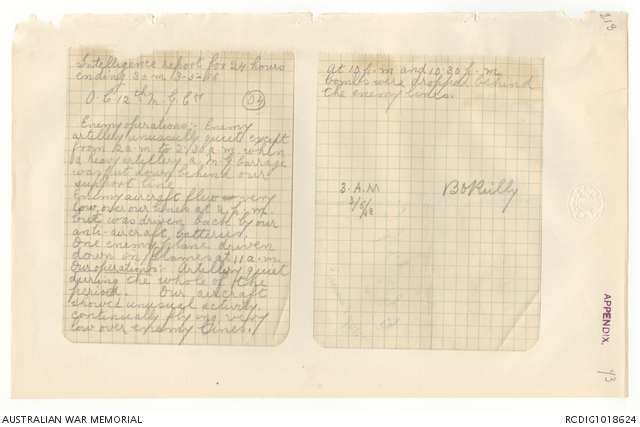 Intelligence report for 24 hours
ending 3 a.m. 3-5-18
O C 12th M. G. Coy
54
Enemy operations:- Enemy
artillery unusually quiet except
from 12 a.m. to 2.30 a.m. when
a heavy artillery a M. G. barrage
was put down behind our
support line
Enemy aircraft flew very
low over our lines at p.m.
but was driven back by our
anti-aircraft batteries.
One enemy plane driven
down in flames at 11 a.m.
Our operations:- Artillery quiet
during the whole of the
period. Our aircraft
showed unusual activity
continually flying very
low over enemy lines.
At 10 p.m and 10.30 p.m
bombs were dropped behind
the enemy lines.
3. A.M
3/5/18
B O'Reilly
218
APPENDIX.
13
AUSTRALIAN WAR MEMORIAL
RCDIG1018624